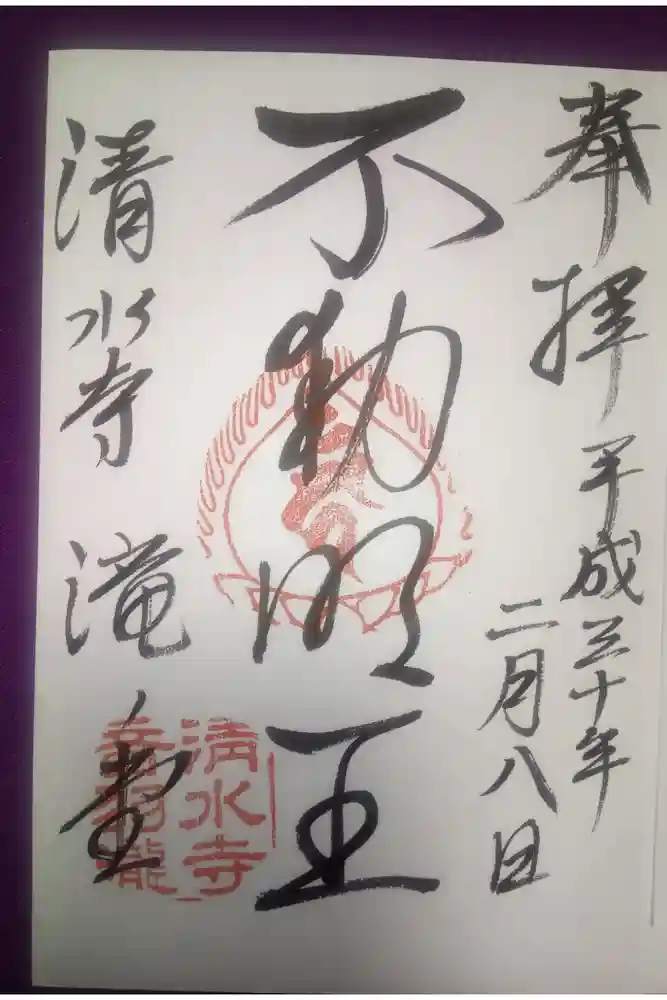 奉拝 平成三十年
二月八日
不動明王
清水寺 滝堂
清水寺
音羽瀧